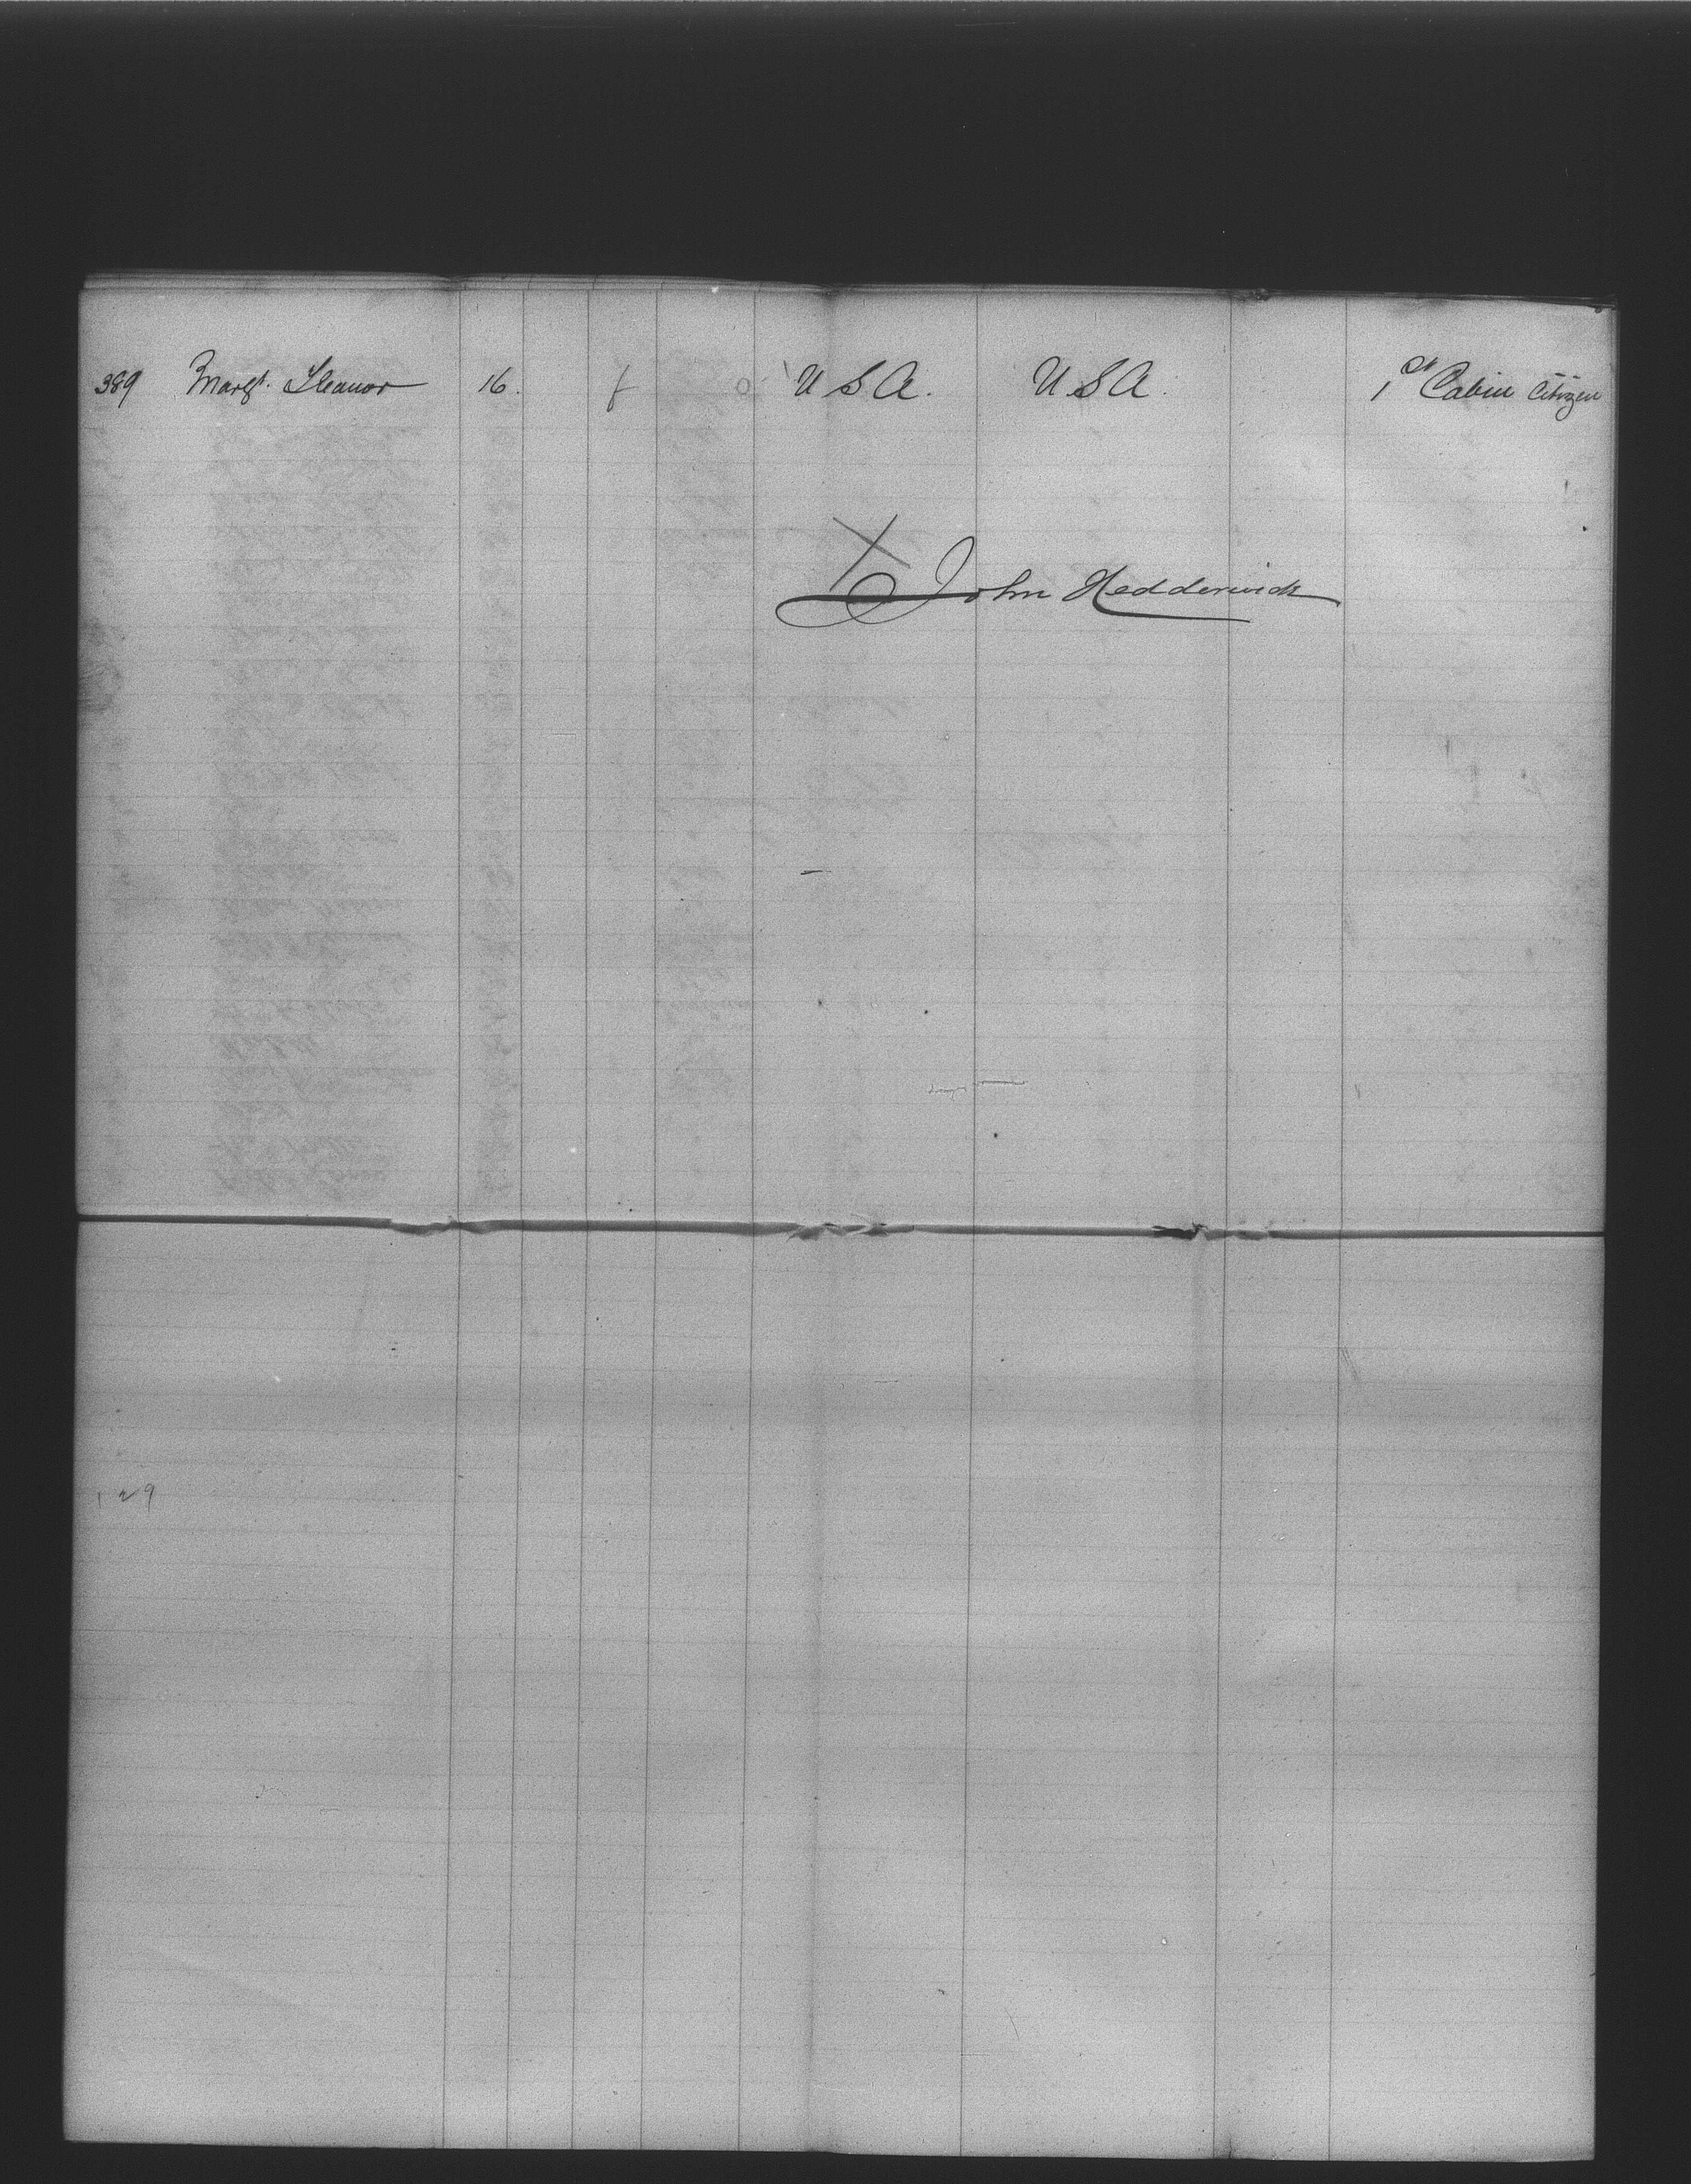 389 Margt. Eleanor 16. f 0 U S A. U S A. 1st Cabin Citizen
X John Hedderwick
29